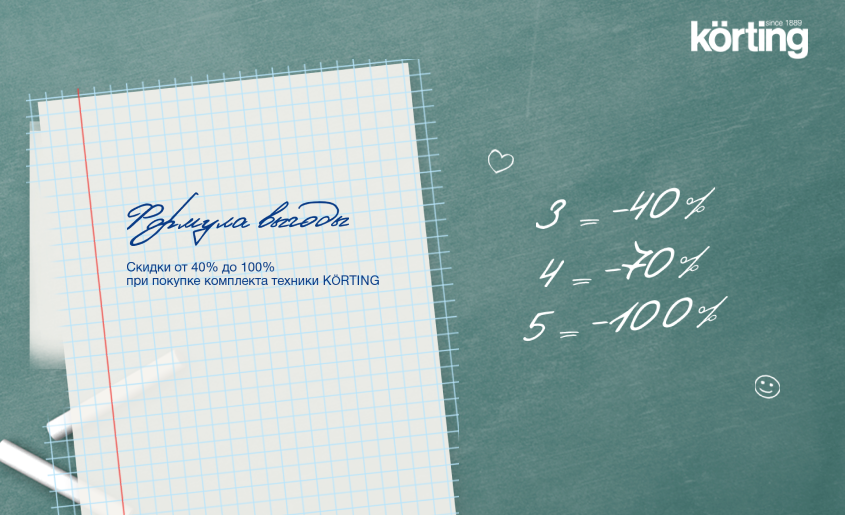 since 1889
körting
Формула выгоды
Скидки от 40% до 100%
при покупке комплекта техники KÖRTING
3 = -40%
4 = -70%
5 = -100%